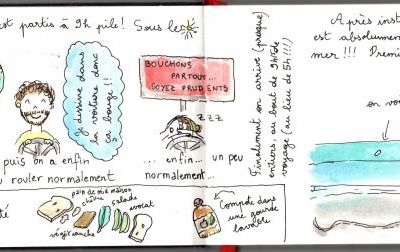 est partis à 9h pile! Sous le
Je dessine dans
la voiture donc
ça bouge!!
BOUCHONS
PARTOUT...
SOYEZ PRUDENTS
ZZZ
puis on a enfin
rouler normalement
... enfin... un peu
normalement...
pain de mie maison
chèvre
salade
avocat
Compote dans
une gourde
lavable
Finalement on arrive (presque)
entiers, au bout de 9h15 de
voyage (au lieu de 5h!!!)
Après inst
est absolumen
mer!!! Premi
on vo